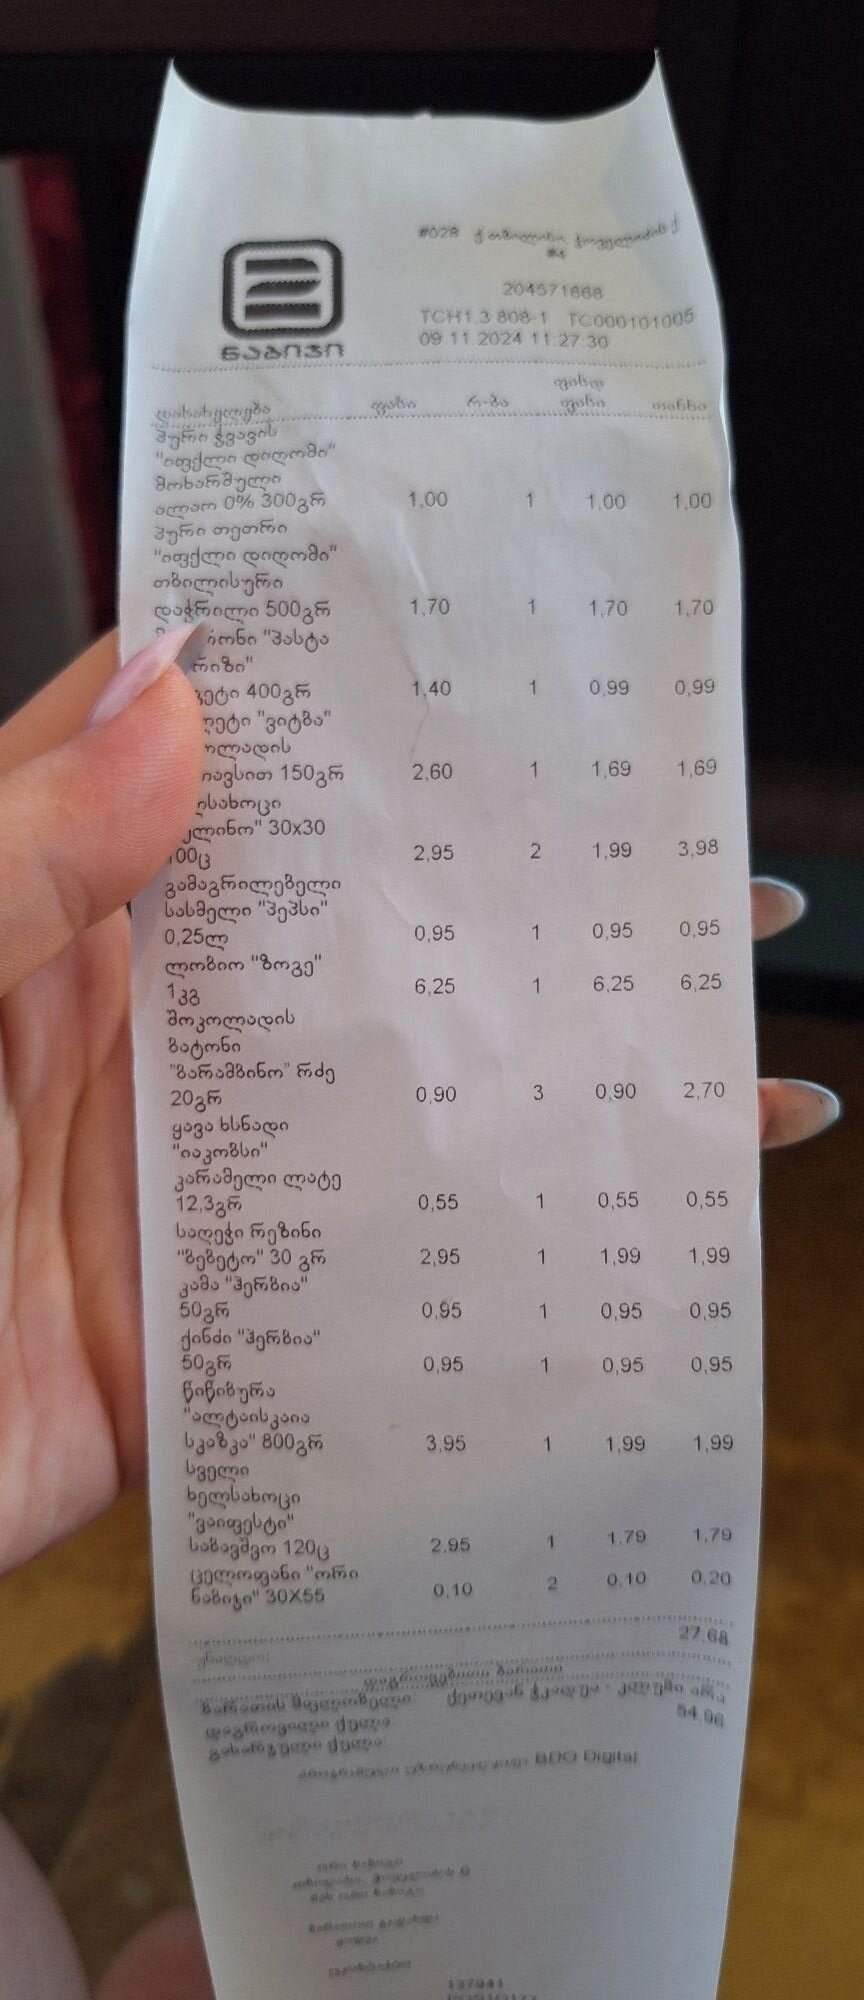 #028
204571668
TCH1.3 808-1 TC000101005
09.11.2024 11:27:30
ნაბიჯი
ფასდ
დასახელება ფასი რ-ბა ფასი თანხა
პური ჭვავის
"იფქლი დიღომი"
მოხარშული
ალაო 0% 300გრ 1,00 1 1,00 1,00
პური თეთრი
"იფქლი დიღომი"
თბილისური
დაჭრილი 500გრ 1,70 1 1,70 1,70
"პასტა
400გრ 1,40 1 0,99 0,99
"ვიტბა"
150გრ 2,60 1 1,69 1,69
30x30
2,95 2 1,99 3,98
გამაგრილებელი
სასმელი "პეპსი"
0,25ლ 0,95 1 0,95 0,95
ლობიო "ზოგე"
1კგ 6,25 1 6,25 6,25
შოკოლადის
ბატონი
"ბარამბინო" რძე
20გრ 0,90 3 0,90 2,70
ყავა ხსნადი
"იაკობსი"
კარამელი ლატე
12,3გრ 0,55 1 0,55 0,55
საღეჭი რეზინი
"ბებეტო" 30 გრ 2,95 1 1,99 1,99
კამა "ჰერბია"
50გრ 0,95 1 0,95 0,95
ქინძი "ჰერბია"
50გრ 0,95 1 0,95 0,95
წიწიბურა
"ალტაისკაია
სკაზკა" 800გრ 3,95 1 1,99 1,99
სველი
ხელსახოცი
"ვაიფესტი"
საბავშვო 120ც 2,95 1 1,79 1,79
ცელოფანი "ორი
ნაბიჯი" 30X55 0,10 2 0,10 0,20
27,68
დაგროვილი ქულა 54,06
გახარჯული ქულა
BDO Digital
137941